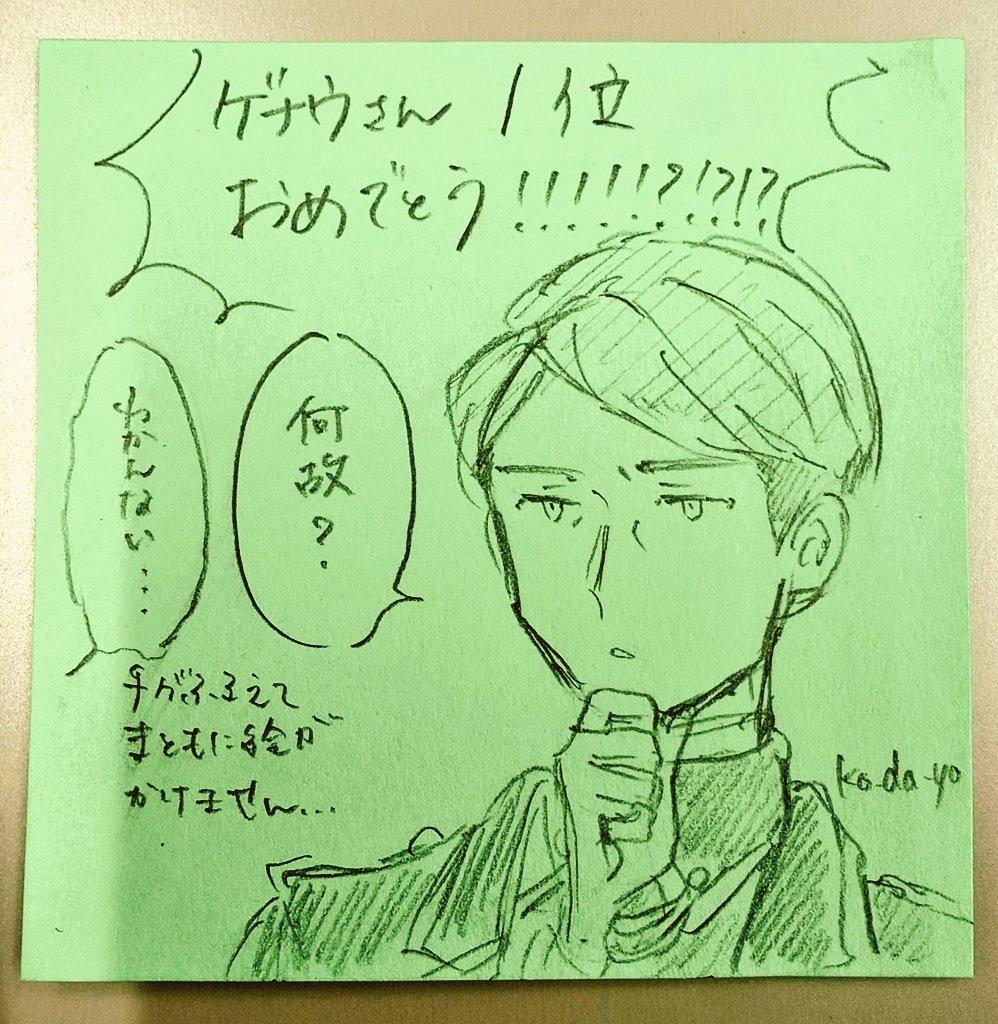 ゲナウさん 1位
おめでとう!!!!!?!?!?
何故?
わかんない…
手がふるえて
まともに絵が
かけません…
ko-da-yo